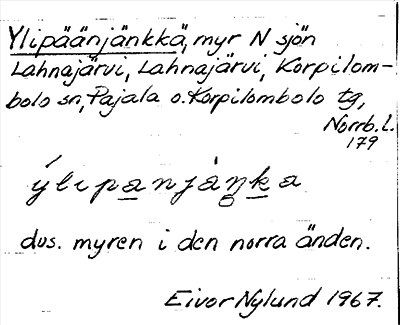 Ylipäänjänkkä, myr N sjön
Lahnajärvi, Lahnajärvi, Korpilom-
bolo sn, Pajala o. Korpilombolo tg,
Norrb. l.
179
ýlipanjàŋka
dvs. myren i den norra änden.
Eivor Nylund 1967.